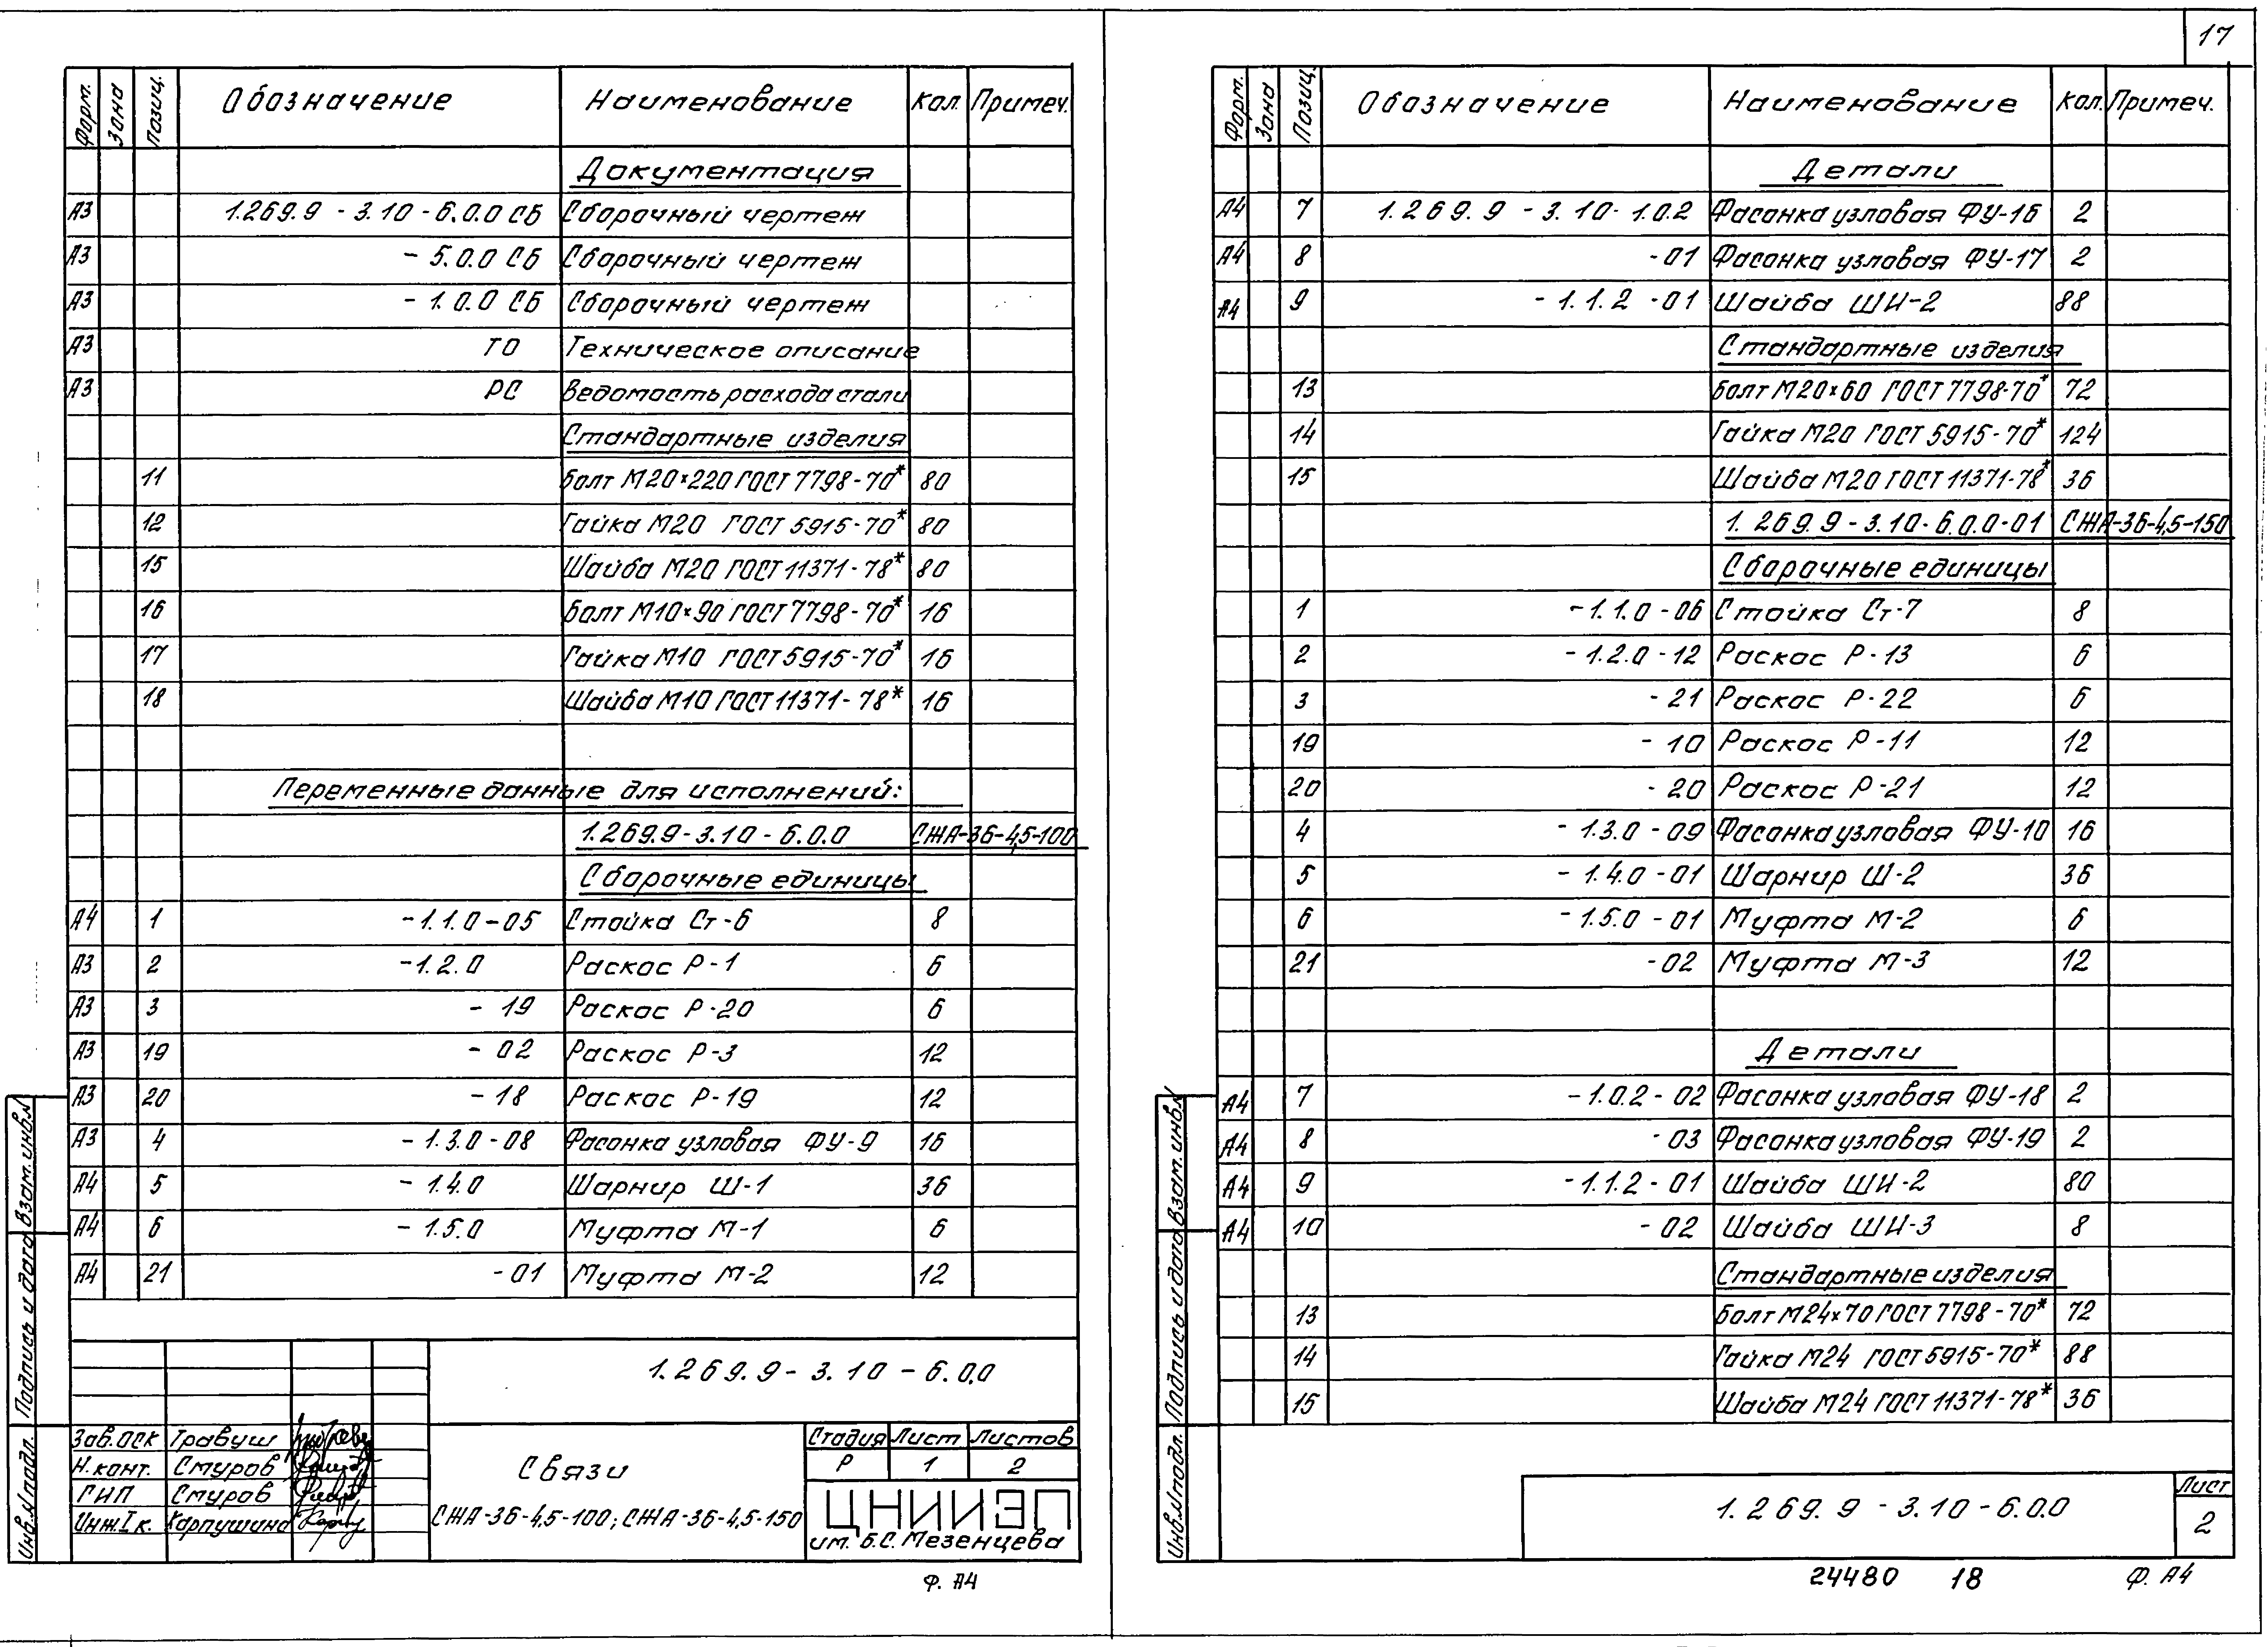 17
Форм. Зона Позиц. Обозначение Наименование Кол. Примеч.
Документация
А3 1.269.9 - 3.10 - 6.0.0 СБ Сборочный чертеж
А3 - 5.0.0 СБ Сборочный чертеж
А3 - 1.0.0 СБ Сборочный чертеж
А3 ТО Техническое описание
А3 РС Ведомость расхода стали
Стандартные изделия
11 Болт М20×220 ГОСТ 7798-70* 80
12 Гайка М20 ГОСТ 5915-70* 80
15 Шайба М20 ГОСТ 11371-78* 80
16 Болт М10×90 ГОСТ 7798-70* 16
17 Гайка М10 ГОСТ 5915-70* 16
18 Шайба М10 ГОСТ 11371-78* 16
Переменные данные для исполнений:
1.269.9-3.10-6.0.0 СЖА-36-4,5-100
Сборочные единицы
А4 1 -1.1.0-05 Стойка Ст-6 8
А3 2 -1.2.0 Раскос Р-1 6
А3 3 - 19 Раскос Р-20 6
А3 19 - 02 Раскос Р-3 12
А3 20 - 18 Раскос Р-19 12
А3 4 - 1.3.0-08 Фасонка узловая ФУ-9 16
А4 5 - 1.4.0 Шарнир Ш-1 36
А4 6 - 1.5.0 Муфта М-1 6
А4 21 -01 Муфта М-2 12
1.269.9-3.10-6.0.0
Зав.ОСК Травуш
Н.конт. Стуров
ГИП Стуров
Инж I к. Карпушина
Связи
СЖА-36-4,5-100; СЖА-36-4,5-150
Стадия Лист Листов
Р 1 2
ЦНИИЭП
им. Б.С. Мезенцева
Инв.№подл. Подпись и дата Взам.инв.№
Ф. А4
Форм. Зона Позиц. Обозначение Наименование Кол. Примеч.
Детали
А4 7 1.269.9 - 3.10-1.0.2 Фасонка узловая ФУ-16 2
А4 8 -01 Фасонка узловая ФУ-17 2
А4 9 -1.1.2 -01 Шайба ШИ-2 88
Стандартные изделия
13 Болт М20×60 ГОСТ 7798-70* 72
14 Гайка М20 ГОСТ 5915-70* 124
15 Шайба М20 ГОСТ 11371-78* 36
1.269.9-3.10-6.0.0-01 СЖА-36-4,5-150
Сборочные единицы
1 -1.1.0-06 Стойка Ст-7 8
2 -1.2.0-12 Раскос Р-13 6
3 -21 Раскос Р-22 6
19 - 10 Раскос Р-11 12
20 - 20 Раскос Р-21 12
4 - 1.3.0 -09 Фасонка узловая ФУ-10 16
5 - 1.4.0-01 Шарнир Ш-2 36
6 -1.5.0 -01 Муфта М-2 6
21 -02 Муфта М-3 12
Детали
А4 7 -1.0.2-02 Фасонка узловая ФУ-18 2
А4 8 -03 Фасонка узловая ФУ-19 2
А4 9 -1.1.2-01 Шайба ШИ-2 80
А4 10 -02 Шайба ШИ-3 8
Стандартные изделия
13 Болт М24×70 ГОСТ 7798-70* 72
14 Гайка М24 ГОСТ 5915-70* 88
15 Шайба М24 ГОСТ 11371-78* 36
1.269.9-3.10-6.0.0
Лист
2
Инв.№подл. Подпись и дата Взам.инв.№
24480 18 Ф. А4